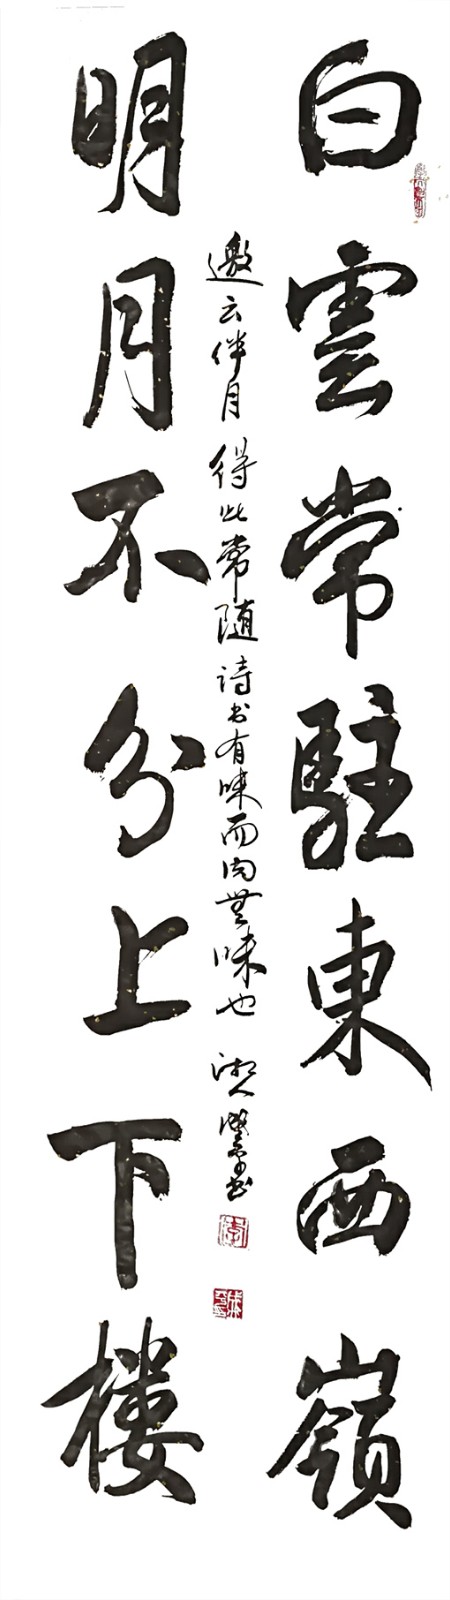 白雲常駐東西嶺
邀云伴月得此常随诗书有味而肉無味也
明月不分上下楼